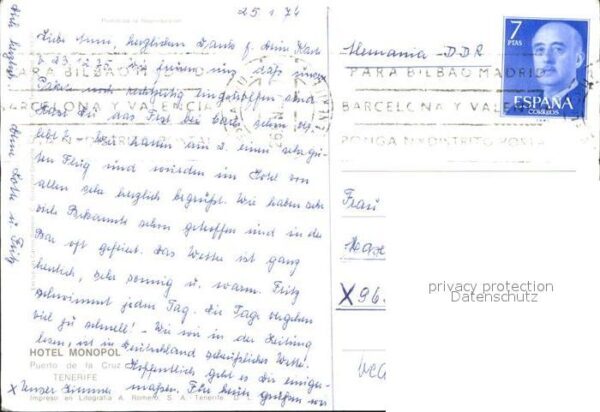 25.1.74
Liebe Anni, herzlichen Dank f. Deine Karte
v. 23.12.73. Wir freuen uns, daß
Pakete noch rechtzeitig und
Ihr das Fest bei Euch schön
habt. Wir hatten am 2. einen sehr gu-
ten Flug und wurden im Hotel von
allen sehr herzlich begrüßt. Wir haben sehr
viele Bekannte schon getroffen und in der
Bar oft gefeiert. Das Wetter ist ganz
herrlich, sehr sonnig u. warm. Fritz
schwimmt jeden Tag. Die Tage vergehen
viel zu schnell! - Wie wir in der Zeitung
lesen, ist in Deutschland scheußliches Wetter.
Hoffentlich geht es Dir einiger-
x Unser Zimmer maßen. Für heute grüßen wir
Dich herzlichst Deine u. Fritz
HOTEL MONOPOL
Puerto de la Cruz
TENERIFE
Impreso en Litografía A. Romero, S. A. Tenerife
PARA BILBAO MADRID
BARCELONA Y VALENCIA
Alemania - DDR
PARA BILBAO MADRID
BARCELONA Y VALENCIA
PONGA Nº DISTRITO POSTAL
7
PTAS
ESPAÑA
CORREOS
Frau
X 96
privacy protection
Datenschutz